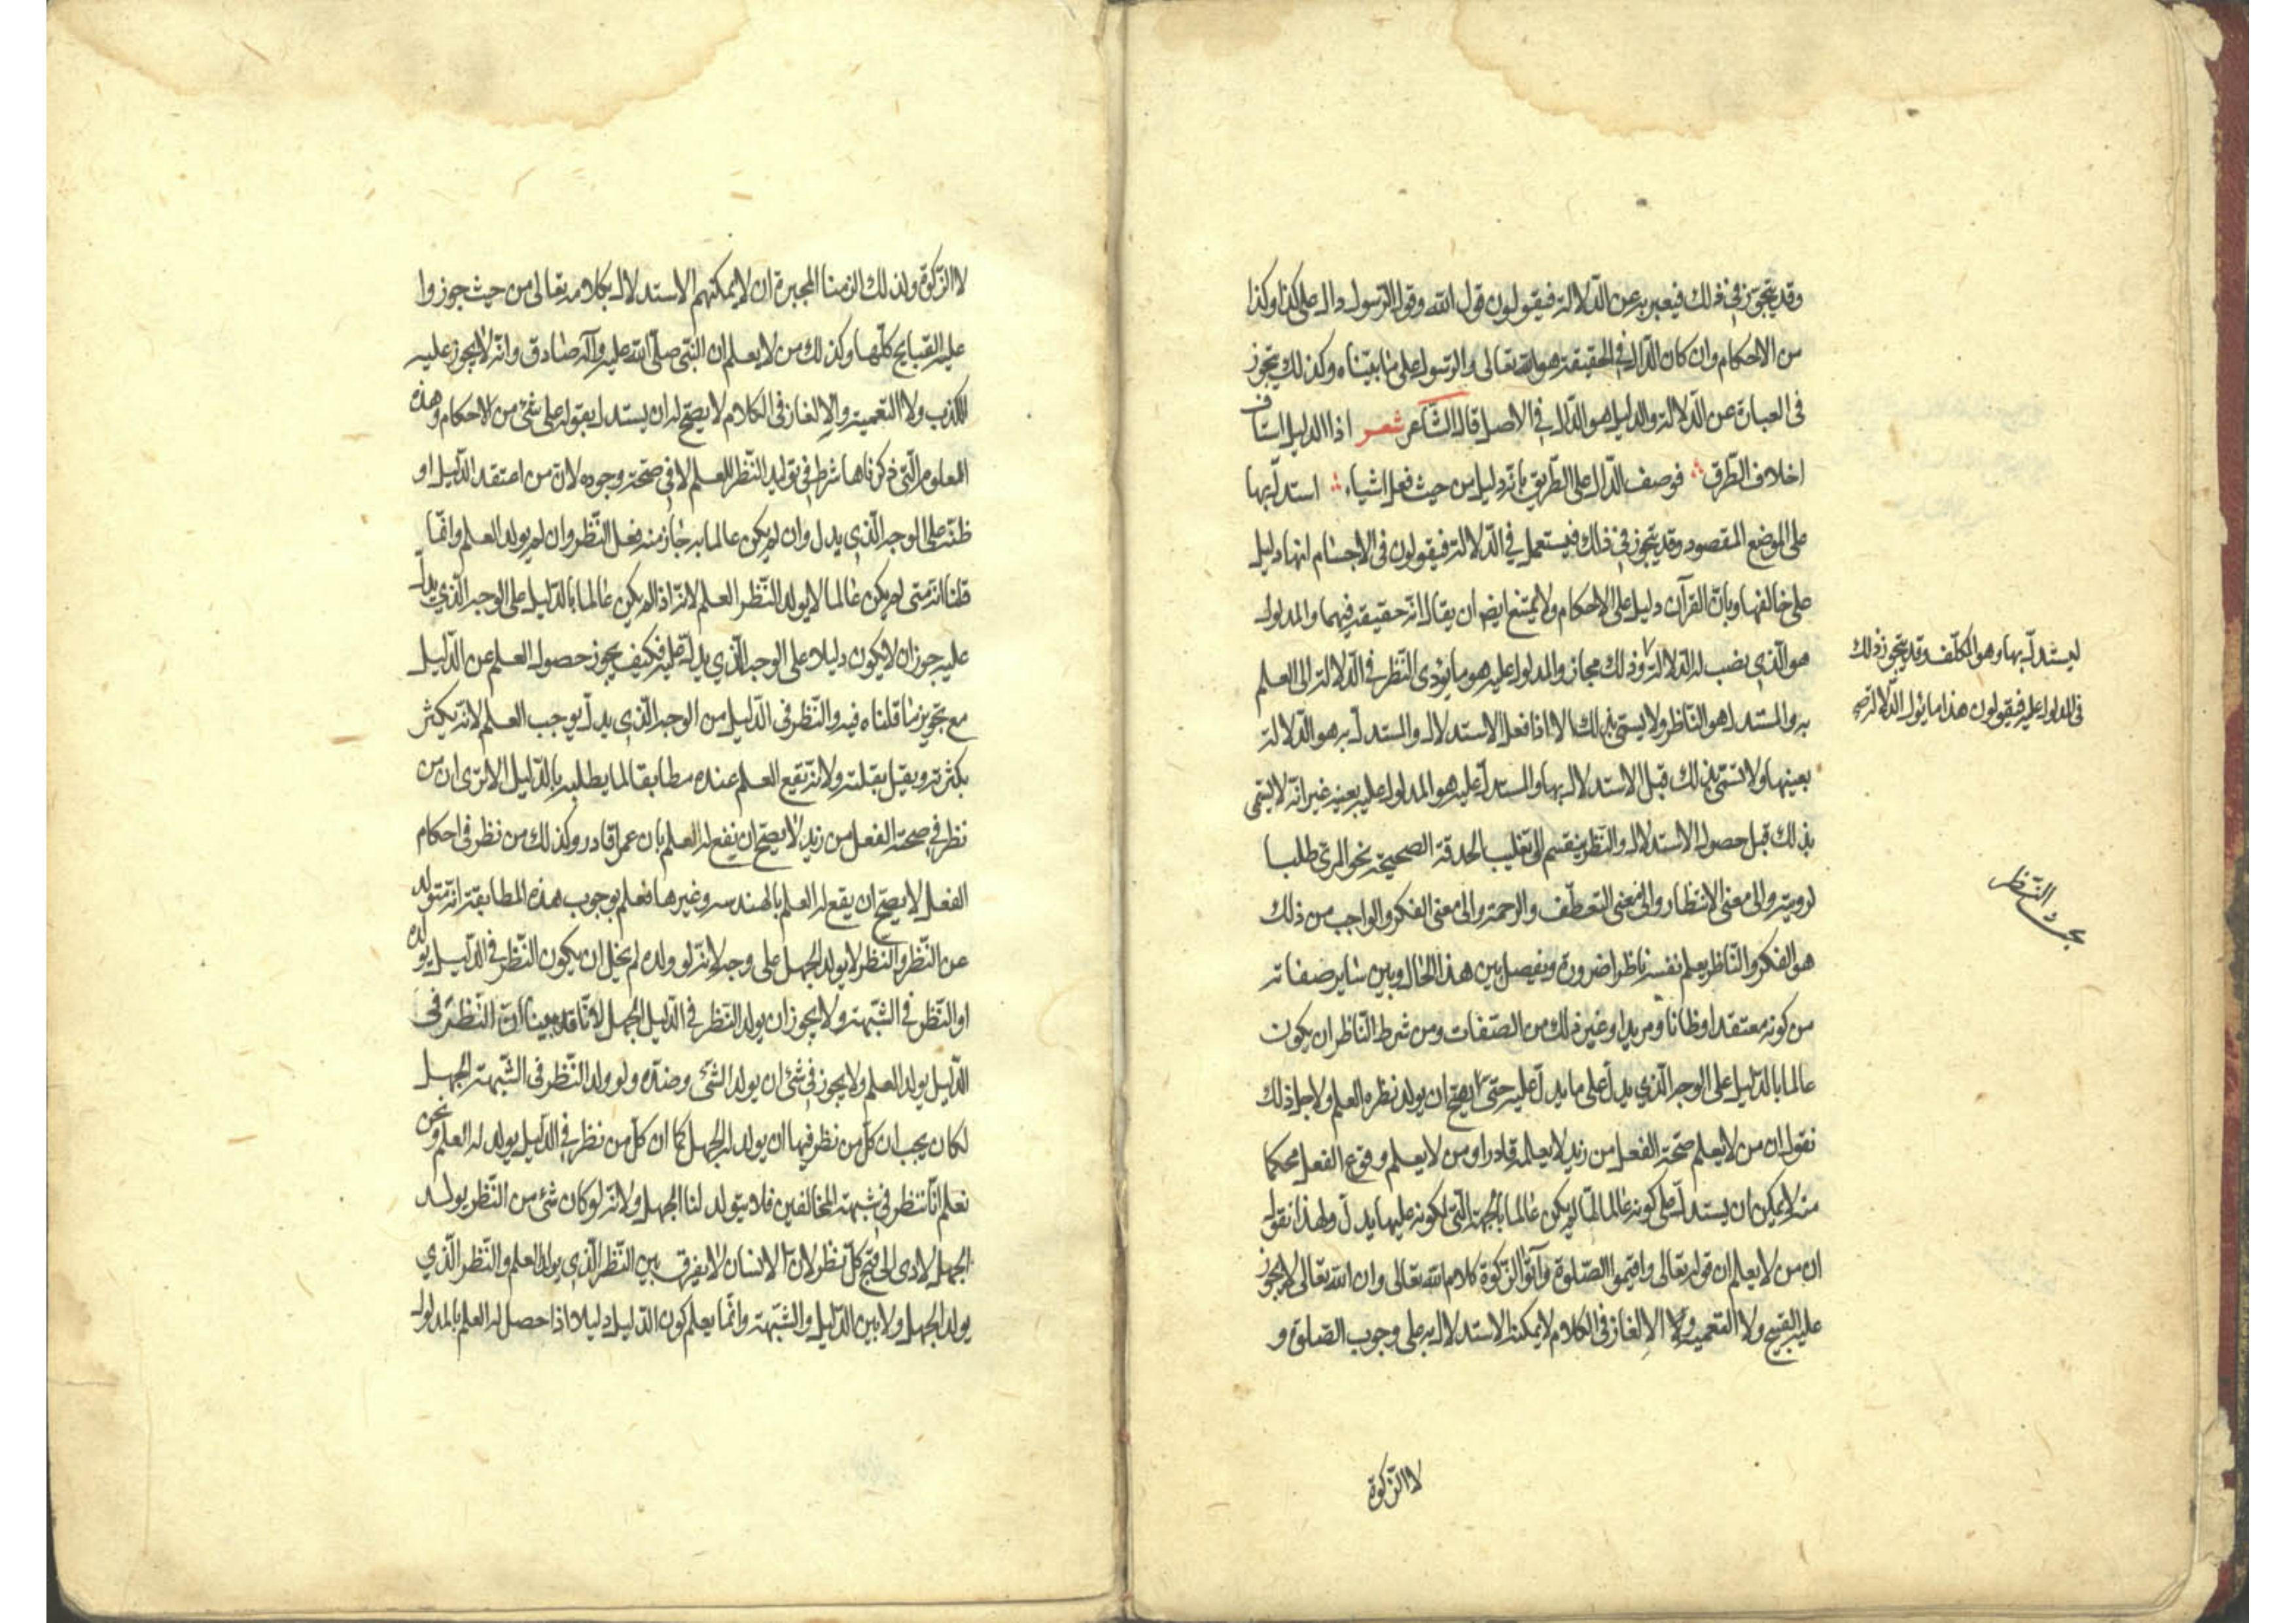 وقد يتجوز في ذلك فيعبر به عن الدلالة فيقولون قول الله وقول الرسول دال على كذا وكذا
من الاحكام وان كان الدال في الحقيقة هو الله تعالى والرسول على ما بيناه وكذلك يتجوز
في العبارة عن الدلالة والدليل هو الدال في الاصل قال الشاعر شعر اذا الدليل استاف
اخلاف الطرق فوصف الدال على الطريق بانه دليل من حيث فعل اشياء استدل بها
على الموضع المقصود وقد يتجوز في ذلك فيستعمل في الدلالة فيقولون في الاجسام انها دليل
على خالقها وبان القرآن دليل على الاحكام ولا يمتنع ايضا ان يقال انه حقيقة فيهما والمدلول
هو الذي نصب له الدلالة وذلك مجاز والمدلول عليه هو ما يؤدى النظر في الدلالة الى العلم
به والمستدل هو الناظر ولا يسمى بذلك الا اذا فعل الاستدلال والمستدل به هو الدلالة
بعينها ولا تسمى بذلك قبل الاستدلال بها والمستدل عليه هو المدلول عليه بعينه غير انه لا يسمى
بذلك قبل حصول الاستدلال والنظر ينقسم الى تقليب الحدقة الصحيحة نحو المرئي طلبا
لرويته والى معنى الانتظار والى معنى التعطف والرحمة والى معنى الفكر والواجب من ذلك
هو الفكر والناظر يعلم نفسه ناظرا ضرورة ويفصل بين هذا الحال وبين ساير صفاته
من كونه معتقدا وظانا ومريدا وغير ذلك من الصفات ومن شرط الناظر ان يكون
عالما بالدليل على الوجه الذي يدل على ما يدل عليه حتى يصح ان يولد نظره العلم ولاجل ذلك
نقول ان من لا يعلم صحة الفعل من زيد لا يعلمه قادرا ومن لا يعلم وقوع الفعل محكما
منه لا يمكن ان يستدل على كونه عالما لما لم يكن عالما بالجهة التي لكونه عليها يدل ولهذا نقول
ان من لا يعلم ان قوله تعالى واقيموا الصلوة وآتوا الزكوة كلام الله تعالى وان الله تعالى لا يجوز
عليه القبيح ولا التعمية ولا الالغاز في الكلام لا يمكنه الاستدلال به على وجوب الصلوة و
ليستدل بها وهو المكلف وقد يتجوز ذلك
في المدلول عليه فيقولون هذا مدلول الدلالة صح
بحث النظر
لا الزكوة
لا الزكوة ولذلك الزمنا المجبرة ان لا يمكنهم الاستدلال بكلامه تعالى من حيث جوزوا
عليه القبايح كلها وكذلك من لا يعلم ان النبي صلى الله عليه وآله صادق وانه لا يجوز عليه
الكذب ولا التعمية والالغاز في الكلام لا يصح له ان يستدل بقوله على شئ من الاحكام وهذه
العلوم التي ذكرناها شرط في توليد النظر للعلم لا في صحة وجوده لان من اعتقد الدليل او
ظنه على الوجه الذي يدل وان لم يكن عالما به جاز منه فعل النظر وان لم يولد العلم وانما
قلنا انه متى لم يكن عالما لا يولد النظر العلم لانه اذا لم يكن عالما بالدليل على الوجه الذي يدل
عليه جوز ان لا يكون دليلا على الوجه الذي يدل عليه فكيف يجوز حصول العلم عن الدليل
مع تجويز ما قلناه فيه والنظر في الدليل من الوجه الذي يدل يوجب العلم لانه يكثر
بكثرته ويقل بقلته ولانه يقع العلم عنده مطابقا لما يطلبه بالدليل الا ترى ان من
نظر في صحة الفعل من زيد لا يصح ان يقع له العلم بان عمرا قادر وكذلك من نظر في احكام
الفعل لا يصح ان يقع له العلم بالهندسه وغيرها فعلم بوجوب هذه المطابقة انه متولد
عن النظر والنظر لا يولد الجهل على وجه لانه لو ولده لم يخل ان يكون النظر في الدليل يولده
او النظر في الشبهة ولا يجوز ان يولد النظر في الدليل الجهل لانا قد بينا ان النظر في
الدليل يولد العلم ولا يجوز في شئ ان يولد الشئ وضده ولو ولد النظر في الشبهة الجهل
لكان يجب ان كل من نظر فيها ان يولد له الجهل كما ان كل من نظر في الدليل يولد له العلم ونحن
نعلم انا ننظر في شبهة المخالفين فلا يتولد لنا الجهل ولانه لو كان شئ من النظر يولد
الجهل لادى الى قبح كل نظر لان الانسان لا يفرق بين النظر الذي يولد العلم والنظر الذي
يولد الجهل ولا بين الدليل والشبهة وانما يعلم كون الدليل دليلا اذا حصل له العلم بالمدلول